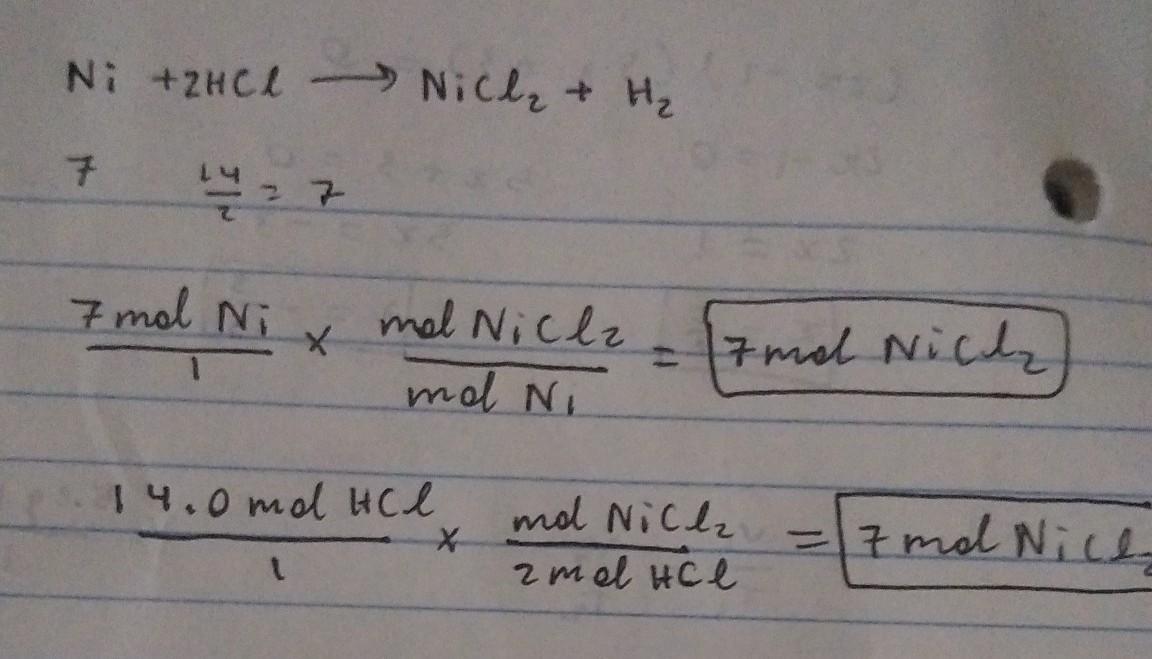 Ni +2HCl → NiCl₂ + H₂
7 14/2 = 7
7 mol Ni/1 × mol NiCl₂/mol Ni = 7 mol NiCl₂
14.0 mol HCl/1 × mol NiCl₂/2 mol HCl = 7 mol NiCl₂